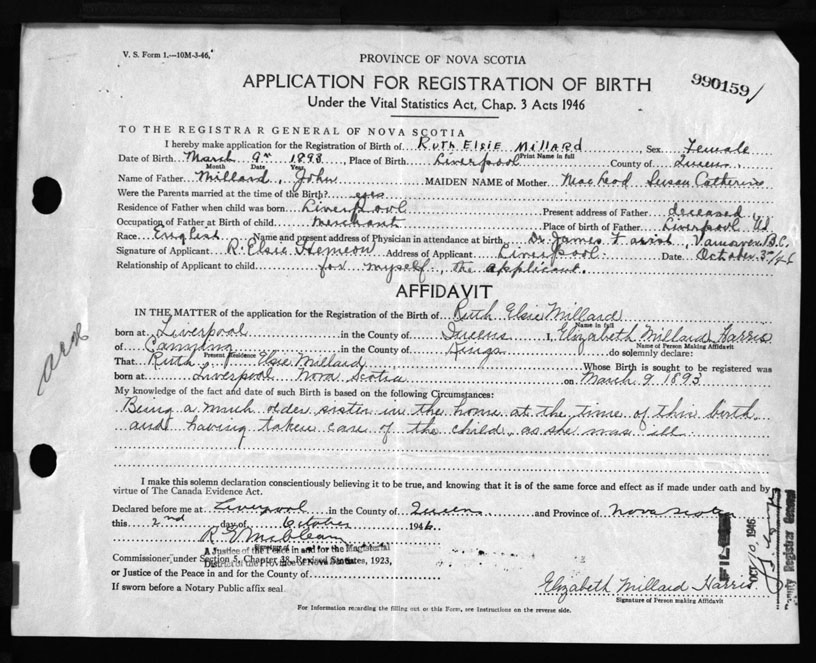 V. S. Form 1.—10M-3-46.
PROVINCE OF NOVA SCOTIA
APPLICATION FOR REGISTRATION OF BIRTH
990159
Under the Vital Statistics Act, Chap. 3 Acts 1946
TO THE REGISTRAR GENERAL OF NOVA SCOTIA
I hereby make application for the Registration of Birth of Ruth Elsie Millard Sex Female
Print Name in full
Date of Birth March 9th 1893, Place of Birth Liverpool County of Queens
Month Date Year
Name of Father Millard, John MAIDEN NAME of Mother MacLeod Susan Catherine
Were the Parents married at the time of the Birth? yes
Residence of Father when child was born Liverpool Present address of Father deceased
Occupation of Father at Birth of child merchant Place of birth of Father Liverpool
Race English Name and present address of Physician in attendance at birth Dr. James Farish, Vancouver B.C.
Signature of Applicant R. Elsie Hemeon Address of Applicant Liverpool Date October 3/46
Relationship of Applicant to child for myself, the applicant.
AFFIDAVIT
IN THE MATTER of the application for the Registration of Birth of Ruth Elsie Millard
Name in full
born at Liverpool in the County of Queens I, Elizabeth Millard Harris
Name of Person Making Affidavit
of Canning in the County of Kings do solemnly declare:
Present Residence
That Ruth Elsie Millard Whose Birth is sought to be registered was
born at Liverpool Nova Scotia on March 9 1893
My knowledge of the fact and date of such Birth is based on the following Circumstances:
Being a much older sister in the home at the time of this birth
and having taken care of the child, as she was ill.
I make this solemn declaration conscientiously believing it to be true, and knowing that it is of the same force and effect as if made under oath and by
virtue of The Canada Evidence Act.
Declared before me at Liverpool in the County of Queens and Province of Nova Scotia
this 2nd day of October 1946
A Justice of the Peace in and for the Magisterial
Commissioner under Section 5, Chapter 38, Revised Statutes, 1923,
District of the Province of Nova Scotia
or Justice of the Peace in and for the County of
If sworn before a Notary Public affix seal
FILED
OCT 10 1946
Deputy Registrar General
Elizabeth Millard Harris
Signature of Person making Affidavit
For Information regarding the filling out of this Form, see Instructions on the reverse side.